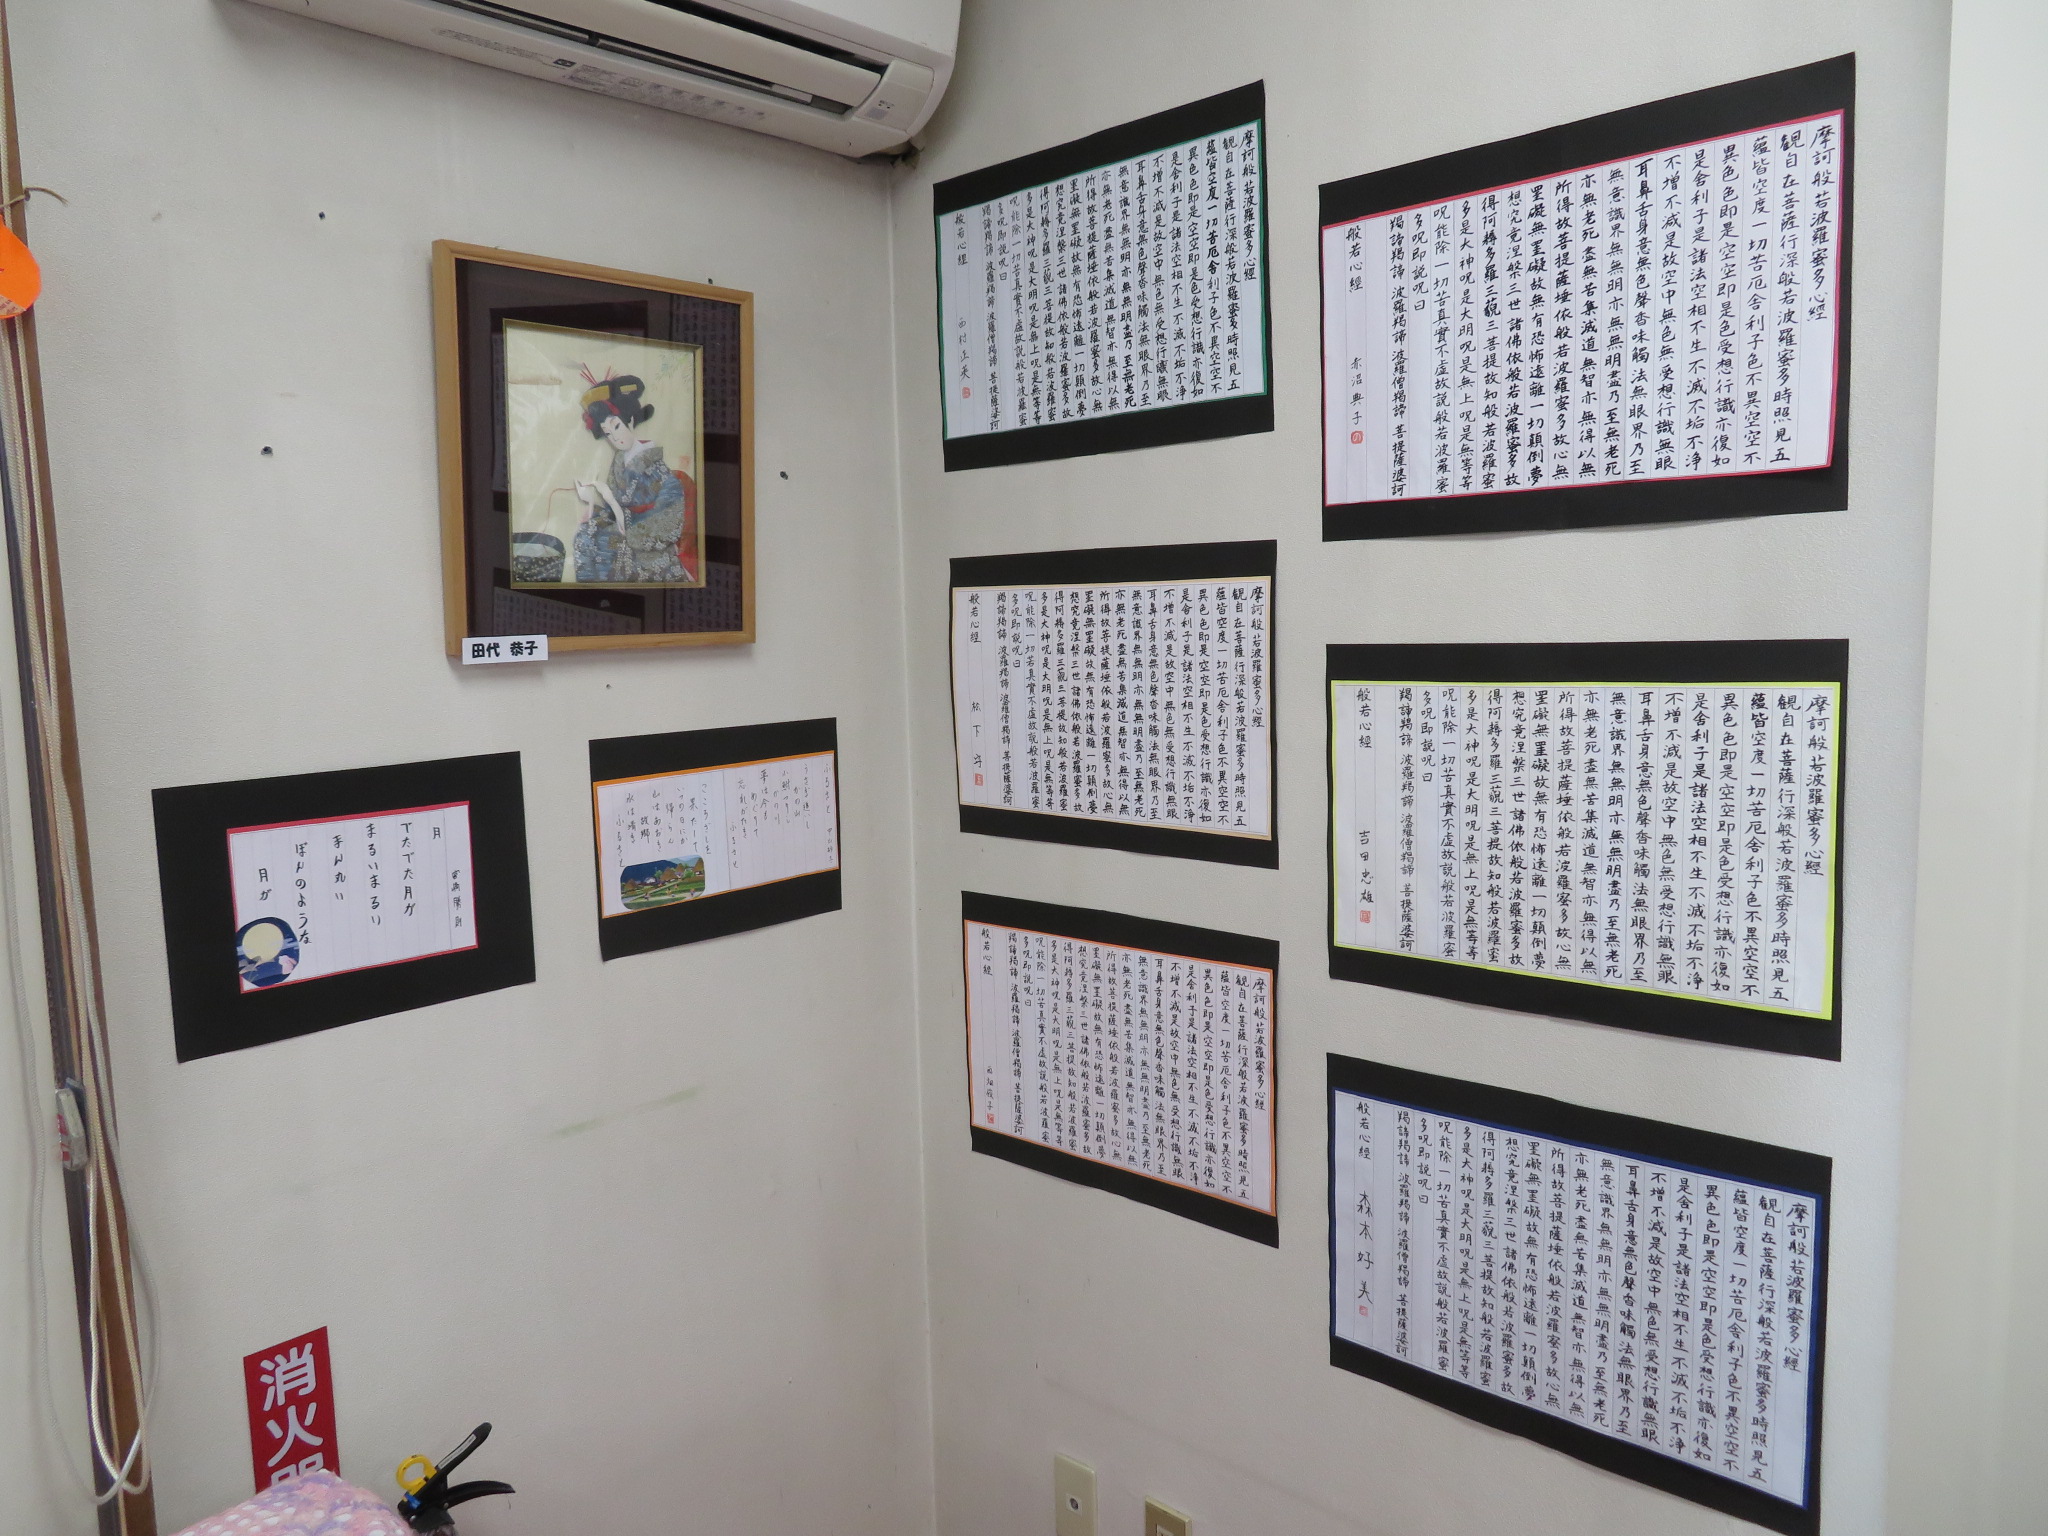 田代 恭子
月
でたでた月が
まるいまるい
まん丸い
ぼんのような
月が
ふるさと
うさぎ追いし
かの山
小鮒つりし
かの川
夢は今も
めぐりて
忘れがたき
ふるさと
こころざしを
果たして
いつの日にか
帰らん
山はあおき
故郷
水は清き
ふるさと
消火器
摩訶般若波羅蜜多心經
観自在菩薩行深般若波羅蜜多時照見五
蘊皆空度一切苦厄舎利子色不異空空不
異色色即是空空即是色受想行識亦復如
是舎利子是諸法空相不生不滅不垢不浄
不増不減是故空中無色無受想行識無眼
耳鼻舌身意無色聲香味觸法無眼界乃至
無意識界無無明亦無無明盡乃至無老死
亦無老死盡無苦集滅道無智亦無得以無
所得故菩提薩埵依般若波羅蜜多故心無
罣礙無罣礙故無有恐怖遠離一切顛倒夢
想究竟涅槃三世諸佛依般若波羅蜜多故
得阿耨多羅三藐三菩提故知般若波羅蜜
多是大神呪是大明呪是無上呪是無等等
呪能除一切苦真實不虚故説般若波羅蜜
多呪即説呪曰
羯諦羯諦 波羅羯諦 波羅僧羯諦 菩提薩婆訶
般若心經 西村正英
摩訶般若波羅蜜多心經
観自在菩薩行深般若波羅蜜多時照見五
蘊皆空度一切苦厄舎利子色不異空空不
異色色即是空空即是色受想行識亦復如
是舎利子是諸法空相不生不滅不垢不浄
不増不減是故空中無色無受想行識無眼
耳鼻舌身意無色聲香味觸法無眼界乃至
無意識界無無明亦無無明盡乃至無老死
亦無老死盡無苦集滅道無智亦無得以無
所得故菩提薩埵依般若波羅蜜多故心無
罣礙無罣礙故無有恐怖遠離一切顛倒夢
想究竟涅槃三世諸佛依般若波羅蜜多故
得阿耨多羅三藐三菩提故知般若波羅蜜
多是大神呪是大明呪是無上呪是無等等
呪能除一切苦真實不虚故説般若波羅蜜
多呪即説呪曰
羯諦羯諦 波羅羯諦 波羅僧羯諦 菩提薩婆訶
般若心經 赤沼典子
摩訶般若波羅蜜多心經
観自在菩薩行深般若波羅蜜多時照見五
蘊皆空度一切苦厄舎利子色不異空空不
異色色即是空空即是色受想行識亦復如
是舎利子是諸法空相不生不滅不垢不浄
不増不減是故空中無色無受想行識無眼
耳鼻舌身意無色聲香味觸法無眼界乃至
無意識界無無明亦無無明盡乃至無老死
亦無老死盡無苦集滅道無智亦無得以無
所得故菩提薩埵依般若波羅蜜多故心無
罣礙無罣礙故無有恐怖遠離一切顛倒夢
想究竟涅槃三世諸佛依般若波羅蜜多故
得阿耨多羅三藐三菩提故知般若波羅蜜
多是大神呪是大明呪是無上呪是無等等
呪能除一切苦真實不虚故説般若波羅蜜
多呪即説呪曰
羯諦羯諦 波羅羯諦 波羅僧羯諦 菩提薩婆訶
般若心經 松下
摩訶般若波羅蜜多心經
観自在菩薩行深般若波羅蜜多時照見五
蘊皆空度一切苦厄舎利子色不異空空不
異色色即是空空即是色受想行識亦復如
是舎利子是諸法空相不生不滅不垢不浄
不増不減是故空中無色無受想行識無眼
耳鼻舌身意無色聲香味觸法無眼界乃至
無意識界無無明亦無無明盡乃至無老死
亦無老死盡無苦集滅道無智亦無得以無
所得故菩提薩埵依般若波羅蜜多故心無
罣礙無罣礙故無有恐怖遠離一切顛倒夢
想究竟涅槃三世諸佛依般若波羅蜜多故
得阿耨多羅三藐三菩提故知般若波羅蜜
多是大神呪是大明呪是無上呪是無等等
呪能除一切苦真實不虚故説般若波羅蜜
多呪即説呪曰
羯諦羯諦 波羅羯諦 波羅僧羯諦 菩提薩婆訶
般若心經 吉田忠雄
摩訶般若波羅蜜多心經
観自在菩薩行深般若波羅蜜多時照見五
蘊皆空度一切苦厄舎利子色不異空空不
異色色即是空空即是色受想行識亦復如
是舎利子是諸法空相不生不滅不垢不浄
不増不減是故空中無色無受想行識無眼
耳鼻舌身意無色聲香味觸法無眼界乃至
無意識界無無明亦無無明盡乃至無老死
亦無老死盡無苦集滅道無智亦無得以無
所得故菩提薩埵依般若波羅蜜多故心無
罣礙無罣礙故無有恐怖遠離一切顛倒夢
想究竟涅槃三世諸佛依般若波羅蜜多故
得阿耨多羅三藐三菩提故知般若波羅蜜
多是大神呪是大明呪是無上呪是無等等
呪能除一切苦真實不虚故説般若波羅蜜
多呪即説呪曰
羯諦羯諦 波羅羯諦 波羅僧羯諦 菩提薩婆訶
般若心經
摩訶般若波羅蜜多心經
観自在菩薩行深般若波羅蜜多時照見五
蘊皆空度一切苦厄舎利子色不異空空不
異色色即是空空即是色受想行識亦復如
是舎利子是諸法空相不生不滅不垢不浄
不増不減是故空中無色無受想行識無眼
耳鼻舌身意無色聲香味觸法無眼界乃至
無意識界無無明亦無無明盡乃至無老死
亦無老死盡無苦集滅道無智亦無得以無
所得故菩提薩埵依般若波羅蜜多故心無
罣礙無罣礙故無有恐怖遠離一切顛倒夢
想究竟涅槃三世諸佛依般若波羅蜜多故
得阿耨多羅三藐三菩提故知般若波羅蜜
多是大神呪是大明呪是無上呪是無等等
呪能除一切苦真實不虚故説般若波羅蜜
多呪即説呪曰
羯諦羯諦 波羅羯諦 波羅僧羯諦 菩提薩婆訶
般若心經 森本好美